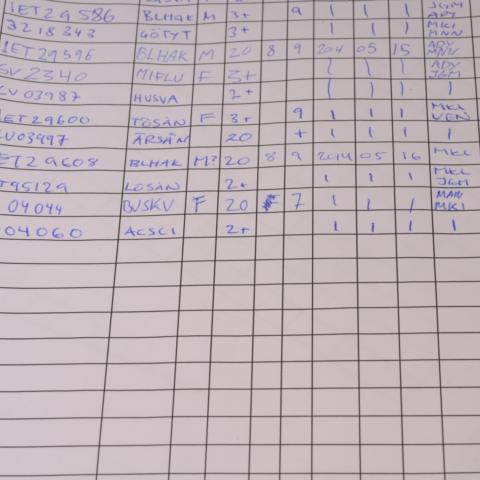 1ET29586 BLHAK M 3+ 9 1 1 1 JGM ADY
3218343 GÖTYT 3+ 1 1 1 MKI MNN
1ET29596 BLHAK M 20 8 9 2014 05 15 ADY MNN
SV2340 MIFLU F 3+ 1 1 1 ADY JGM
LV03987 HUSVA 2+ 1 1 1 1
1ET29600 TOSÅN F 3+ 9 1 1 1 MKL VEN
LV03997 ÄRSÅN 20 + 1 1 1 1
ET29608 BLHAK M? 20 8 9 2014 05 16 MKL
T95129 LOSÅN 2+ 1 1 1 MKL JGM
04044 BUSKV F 20 7 1 1 1 MKI
04060 ACSCI 2+ 1 1 1 1